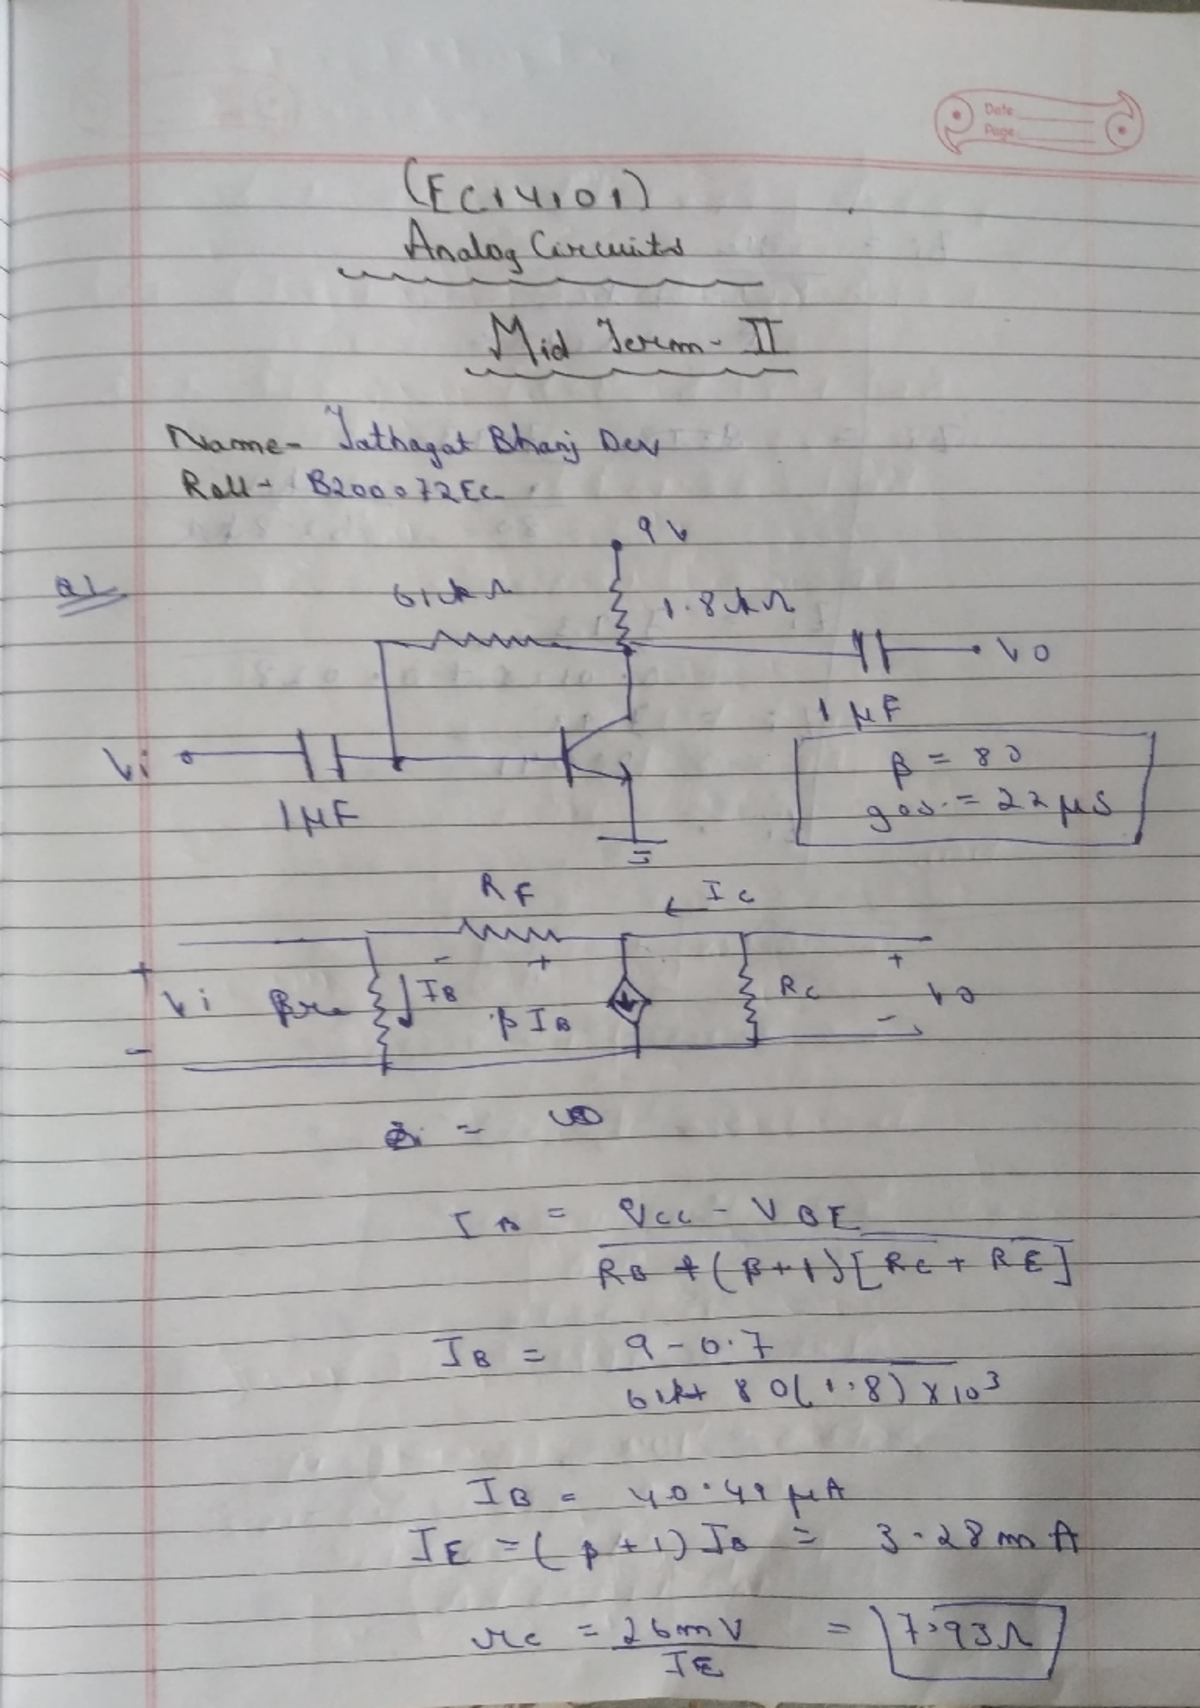 Date
Page
(EC14101)
Analog Circuits
Mid Term - II
Name - Tathagat Bhanj Dev
Roll - B200072EC
9V
Q1
61kΩ
1.8kΩ
Vo
1µF
Vi
1µF
β = 80
gos = 22µS
RF
IC
+ - + +
Vi βre IB βIB RC Vo
- -
Zi = ∞
IB = VCC - VBE
RB + (β+1)[RC + RE]
IB = 9 - 0.7
61k + 80(1.8) × 10³
IB = 40.49 µA
IE = (β+1) IB = 3.28 mA
re = 26mV = 7.93Ω
IE